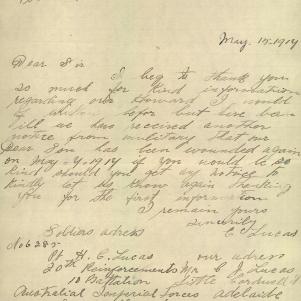 May. 15-1917
Dear Sir
I beg to thank you
so much for kind information
regarding our Howard I would
of before but have been
ill we have received another
notice from military that our
Dear Son has been wounded again
on May-4-1917 if you would be so
kind should you get any notice to
kindly let us know again thanking
you for the first information
I remain Yours
Sincerely
C Lucas
Soldiers adress
No 6282
Pt H. C. Lucas our adress
20th Reinforcements Mr C J Lucas
10 Battalion Little
Australian Imperial Forces Adelaide